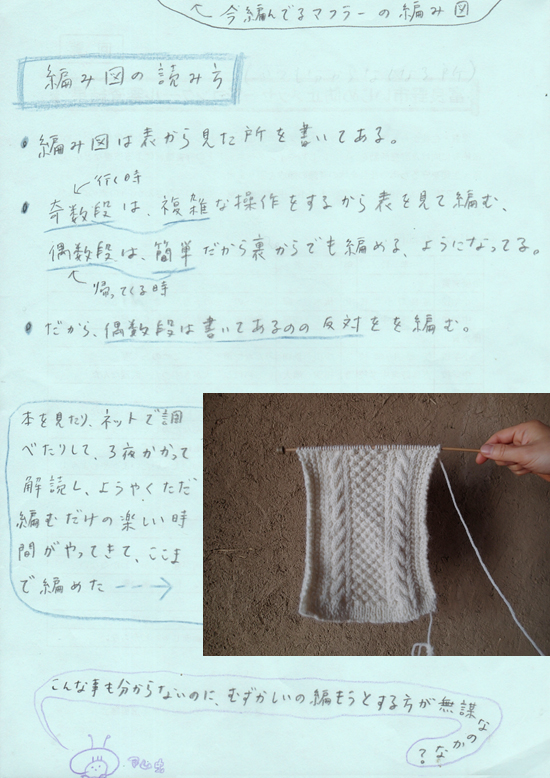 今編んでるマフラーの編み図
編み図の読み方
編み図は表から見た所を書いてある。
行く時
奇数段は、複雑な操作をするから表を見て編む、
偶数段は、簡単だから裏からでも編める、ようになってる。
帰ってくる時
だから、偶数段は書いてあるのの反対をを編む。
本を見たり、ネットで調
べたりして、3夜かかって
解読し、ようやくただ
編むだけの楽しい時
間がやってきて、ここま
で編めた
こんな事も分からないのに、むずかしいの編もうとする方が無謀なのかな?